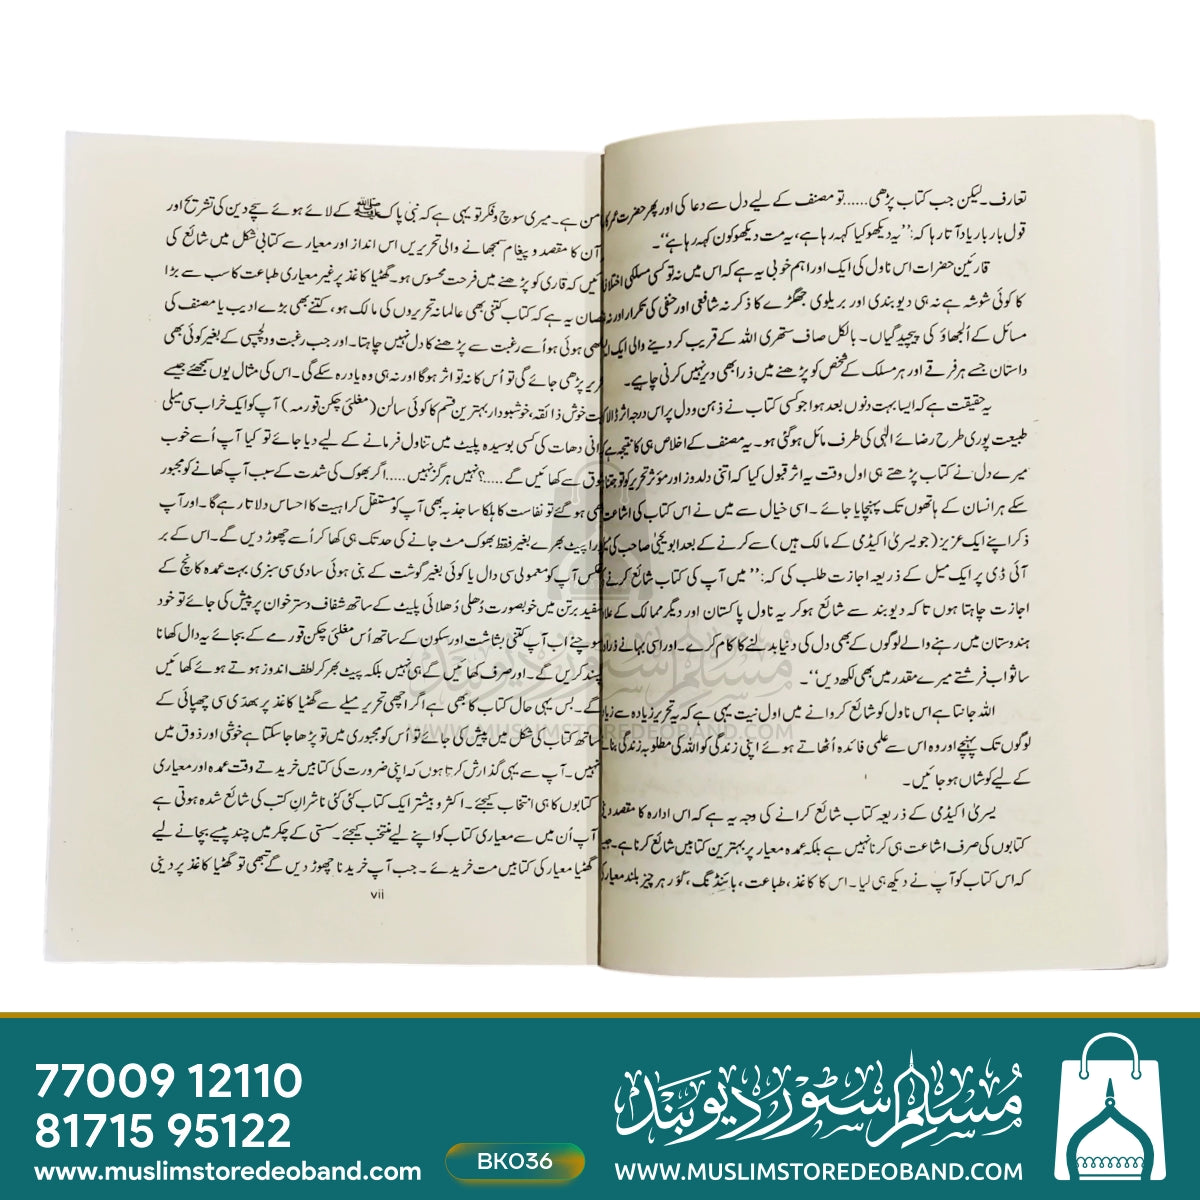 تعارف۔ لیکن جب کتاب پڑھی......تو مصنف کے لیے دل سے دعا کی اور پھر حضرت عمر کا
قول بار بار یاد آتا رہا کہ: ’’یہ دیکھو کیا کہہ رہا ہے، یہ مت دیکھو کون کہہ رہا ہے‘‘۔
قارئین حضرات اس ناول کی ایک اور اہم خوبی یہ ہے کہ اس میں نہ تو کسی مسلکی اختلاف
کا کوئی شوشہ ہے نہ ہی دیوبندی اور بریلوی جھگڑے کا ذکر نہ شافعی اور حنفی کی تکرار اور نہ
مسائل کے اُلجھاؤ کی پیچیدگیاں۔ بالکل صاف ستھری اللہ کے قریب کردینے والی ایک
داستان جسے ہر فرقے اور ہر مسلک کے شخص کو پڑھنے میں ذرا بھی دیر نہیں کرنی چاہیے۔
یہ حقیقت ہے کہ ایسا بہت دنوں بعد ہوا جو کسی کتاب نے ذہن و دل پر اس درجہ اثر ڈالا کہ
طبیعت پوری طرح رضائے الٰہی کی طرف مائل ہوگئی ہو۔ یہ مصنف کے اخلاص ہی کا نتیجہ ہے
میرے دل نے کتاب پڑھتے ہی اول وقت یہ اثر قبول کیا کہ اتنی دلدوز اور مؤثر تحریر کو تو جتنا
سکے ہر انسان کے ہاتھوں تک پہنچایا جائے۔ اسی خیال سے میں نے اس کتاب کی اشاعت
ذکر اپنے ایک عزیز (جو یسریٰ اکیڈمی کے مالک ہیں) سے کرنے کے بعد ابو یحییٰ صاحب کی
آئی ڈی پر ایک میل کے ذریعہ اجازت طلب کی کہ: ’’میں آپ کی کتاب شائع کرنے
اجازت چاہتا ہوں تاکہ دیوبند سے شائع ہوکر یہ ناول پاکستان اور دیگر ممالک کے علاوہ
ہندوستان میں رہنے والے لوگوں کے بھی دل کی دنیا بدلنے کا کام کرے۔ اور اسی بہانے ذرا
سا ثواب فرشتے میرے مقدر میں بھی لکھ دیں‘‘۔
اللہ جانتا ہے اس ناول کو شائع کروانے میں اول نیت یہی ہے کہ یہ تحریر زیادہ سے زیادہ
لوگوں تک پہنچے اور وہ اس سے علمی فائدہ اُٹھاتے ہوئے اپنی زندگی کو اللہ کی مطلوبہ زندگی بنانے
کے لیے کوشاں ہوجائیں۔
یسریٰ اکیڈمی کے ذریعہ کتاب شائع کرانے کی وجہ یہ ہے کہ اس ادارہ کا مقصد دینی
کتابوں کی صرف اشاعت ہی کرنا نہیں ہے بلکہ عمدہ معیار پر بہترین کتابیں شائع کرنا ہے۔ جیسے
کہ اس کتاب کو آپ نے دیکھ ہی لیا۔ اس کا کاغذ، طباعت، بائنڈنگ، گور ہر چیز بلند معیار
من ہے۔ میری سوچ وفکر تو یہی ہے کہ نبی پاک ﷺ کے لائے ہوئے سچے دین کی تشریح اور
آن کا مقصد و پیغام سمجھانے والی تحریریں اس انداز اور معیار سے کتابی شکل میں شائع کی
ئیں کہ قاری کو پڑھنے میں فرحت محسوس ہو۔ گھٹیا کاغذ پر غیر معیاری طباعت کا سب سے بڑا
صان یہ ہے کہ کتاب کتنی بھی عالمانہ تحریروں کی مالک ہو، کتنے بھی بڑے ادیب یا مصنف کی
ھی ہوئی ہو اُسے رغبت سے پڑھنے کا دل نہیں چاہتا۔ اور جب رغبت و دلچسپی کے بغیر کوئی بھی
ریر پڑھی جائے گی تو اُس کا نہ تو اثر ہوگا اور نہ ہی وہ یاد رہ سکے گی۔ اس کی مثال یوں سمجھئے جیسے
ت خوش ذائقہ، خوشبودار بہترین قسم کا کوئی سالن (مغلئی چکن قورمہ) آپ کو ایک خراب سی میلی
انی دھات کی کسی بوسیدہ پلیٹ میں تناول فرمانے کے لیے دیا جائے تو کیا آپ اُسے خوب
وق سے کھائیں گے.....؟ نہیں ہرگز نہیں..... اگر بھوک کی شدت کے سبب آپ کھانے کو مجبور
ھی ہوگئے تو نفاست کا ہلکا سا جذبہ بھی آپ کو مستقل کراہیت کا احساس دلاتا رہے گا۔ اور آپ
را پیٹ بھرے بغیر فقط بھوک مٹ جانے کی حد تک ہی کھا کر اُسے چھوڑ دیں گے۔ اس کے بر
عکس آپ کو معمولی سی دال یا کوئی بغیر گوشت کے بنی ہوئی سادی سی سبزی بہت عمدہ کانچ کے
سفید برتن میں خوبصورت دُھلی دُھلائی پلیٹ کے ساتھ شفاف دسترخوان پر پیش کی جائے تو خود
سوچئے اب آپ کتنی بشاشت اور سکون کے ساتھ اُس مغلئی چکن قورمے کے بجائے یہ دال کھانا
پسند کریں گے۔ اور صرف کھائیں گے ہی نہیں بلکہ پیٹ بھر کر لطف اندوز ہوتے ہوئے کھائیں
گے۔ بس یہی حال کتاب کا بھی ہے اگر اچھی تحریر میلے سے گھٹیا کاغذ پر بھدّی سی چھپائی کے
ساتھ کتاب کی شکل میں پیش کی جائے تو اُس کو مجبوری میں تو پڑھا جاسکتا ہے خوشی اور ذوق میں
نہیں۔ آپ سے یہی گذارش کرتا ہوں کہ اپنی ضرورت کی کتابیں خریدتے وقت عمدہ اور معیاری
کتابوں کا ہی انتخاب کیجئے۔ اکثر و بیشتر ایک کتاب کئی کئی ناشرانِ کتب کی شائع شدہ ہوتی ہے
آپ اُن میں سے معیاری کتاب کو اپنے لیے منتخب کیجئے۔ سستی کے چکر میں چند پیسے بچانے لیے
گھٹیا معیار کی کتابیں مت خریدئے۔ جب آپ خریدنا چھوڑ دیں گے تبھی تو گھٹیا کاغذ پر دینی
vii
مسلم سٹور دیوبند
WWW.MUSLIMSTOREDEOBAND.COM
77009 12110
81715 95122
www.muslimstoredeoband.com
BK036
مسلم سٹور دیوبند
WWW.MUSLIMSTOREDEOBAND.COM